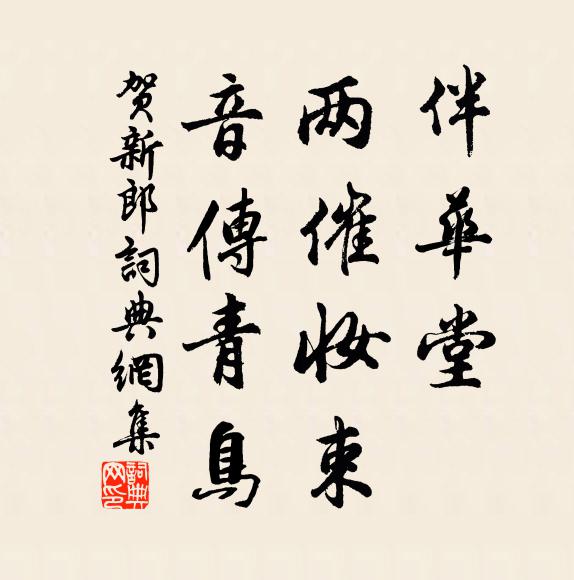 伴華堂
两催妆束
音傳青鳥
贺新郎詞典網集
詞典网印